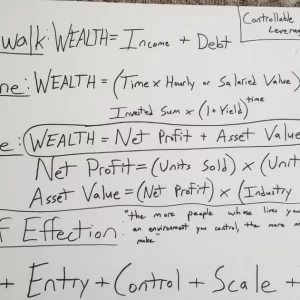 Controllable
Leverag
walk: WEALTH = Income + Debt
ne: WEALTH = (Time x Hourly or Salaried Value)
Invested Sum x (1+Yield)^time
e: WEALTH = Net Profit + Asset Value
Net Profit = (Units Sold) x (Unit
Asset Value = (Net Profit) x (Industry
f Effection:
"the more people whose lives you
an environment you control, the more m
make."
+ Entry + Control + Scale +